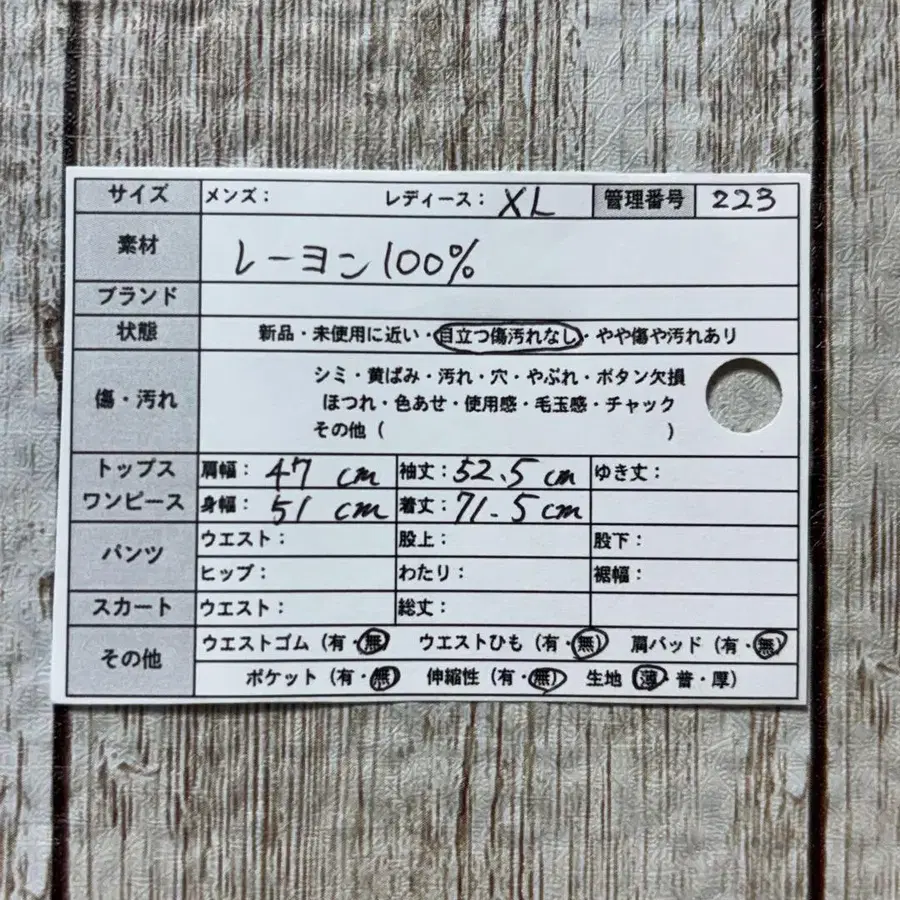 サイズ メンズ： レディース： XL 管理番号 223
素材 レーヨン100%
ブランド
状態 新品・未使用に近い・目立つ傷汚れなし・やや傷や汚れあり
傷・汚れ シミ・黄ばみ・汚れ・穴・やぶれ・ボタン欠損
ほつれ・色あせ・使用感・毛玉感・チャック
その他（ ）
トップス 肩幅： 47 cm 袖丈：52.5 cm ゆき丈：
ワンピース 身幅： 51 cm 着丈：71.5 cm
パンツ ウエスト： 股上： 股下：
ヒップ： わたり： 裾幅：
スカート ウエスト： 総丈：
その他 ウエストゴム（有・無） ウエストひも（有・無） 肩パッド（有・無）
ポケット（有・無） 伸縮性（有・無） 生地（薄・普・厚）